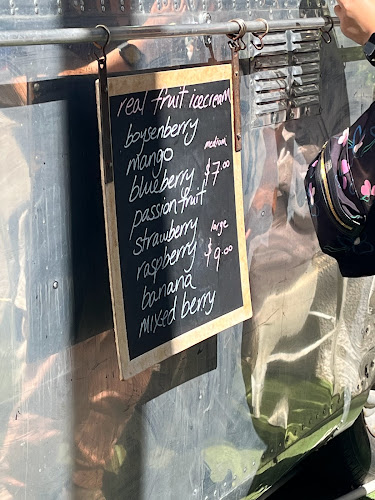 real fruit icecream
boysenberry
mango medium
blueberry $7.00
passionfruit
strawberry large
raspberry $9.00
banana
mixed berry